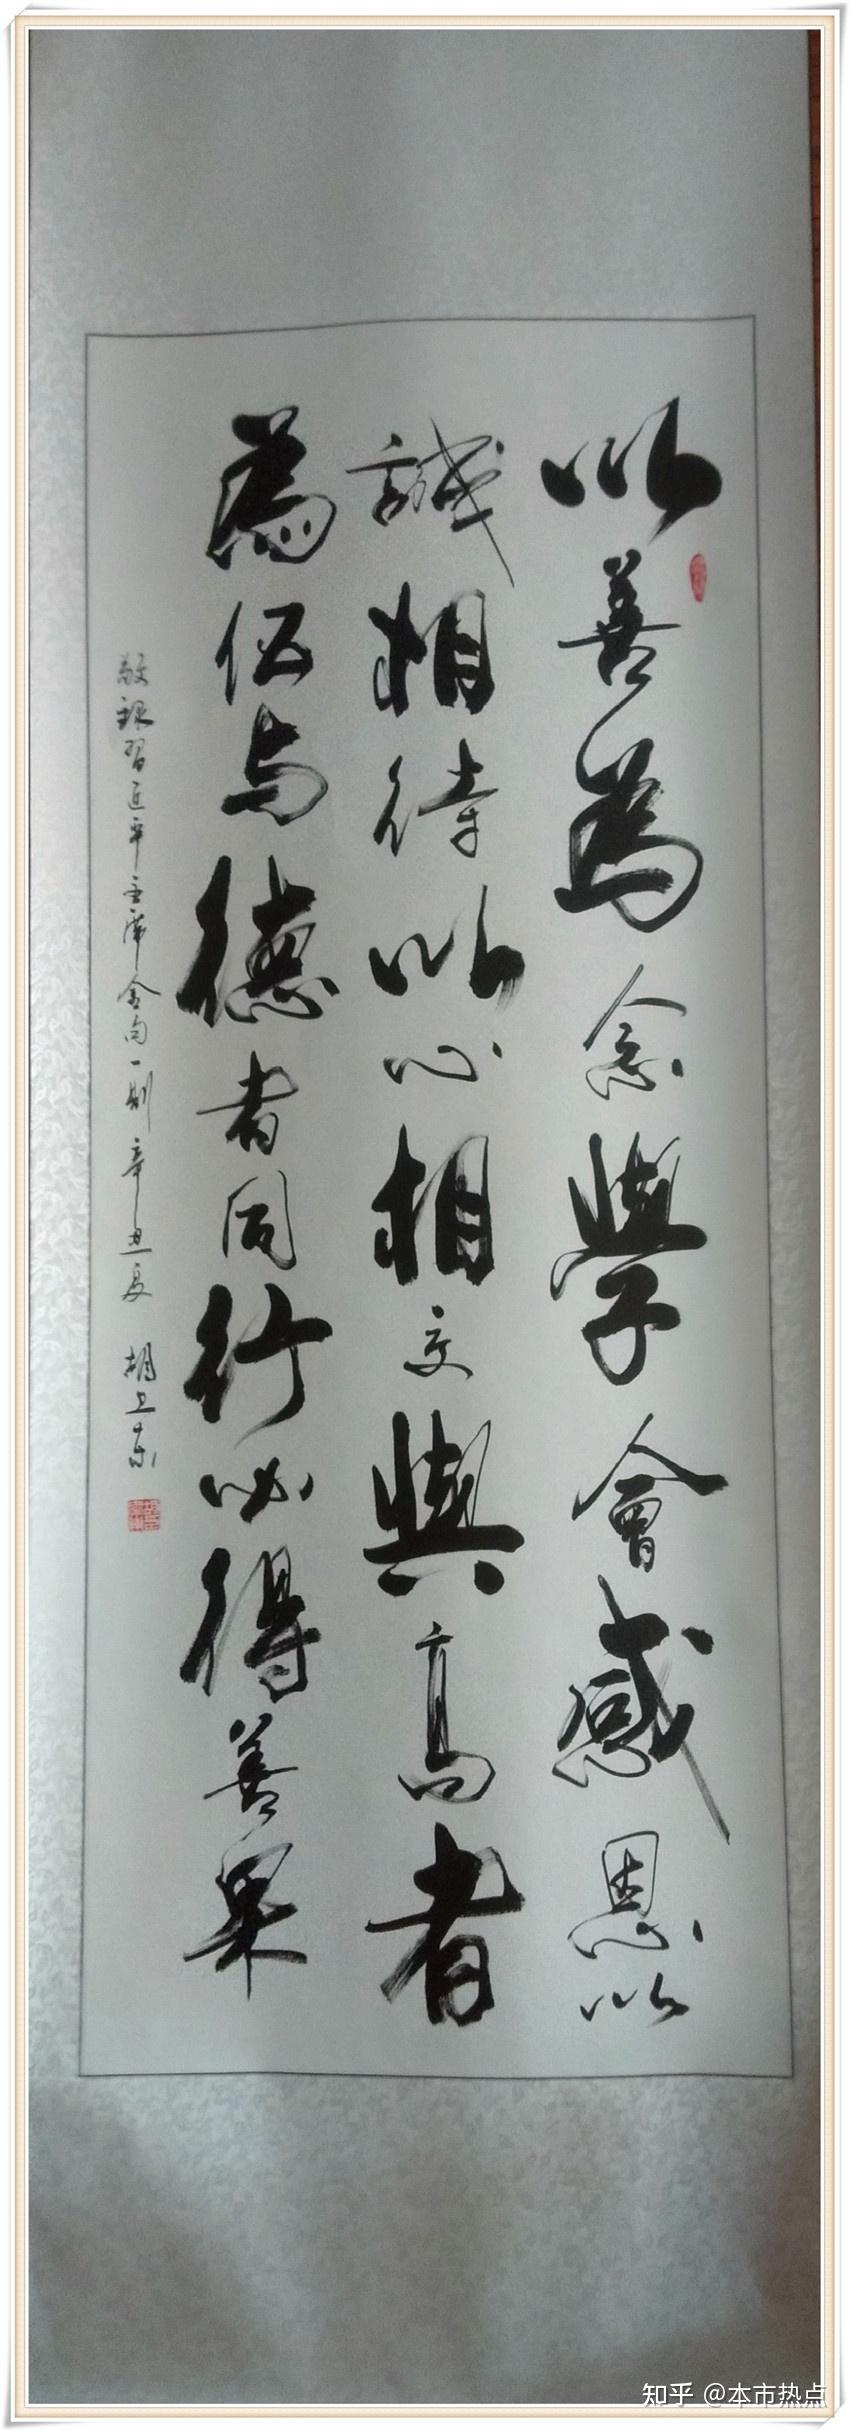 以善為念學會感恩以
誠相待以心相交與高者
為伍与德者同行必得善果
敬録習近平主席金句一則辛丑夏 胡卫东
知乎 @本市热点